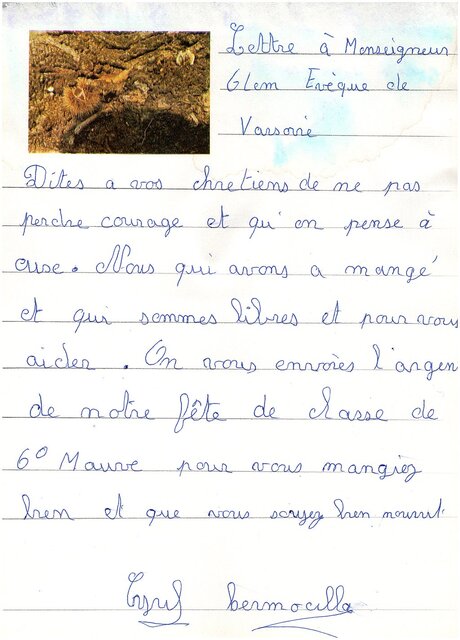 Lettre à Monseigneur
Glem Evêque de
Varsovie
Dites a vos chretiens de ne pas
perdre courage et qu'on pense à
euse. Nous qui avons a mangé
et qui sommes libres et pour vous
aider. On vous envoies l'argen
de notre fête de classe de
6° Mauve pour vous mangiez
bien et que vous soyez bien nourrit.